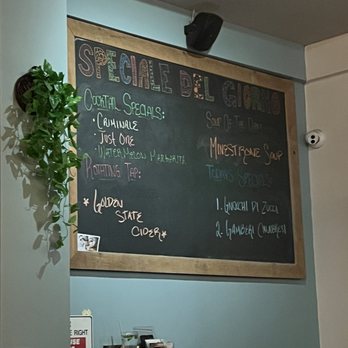 SPECIALE DEL GIORNO
COCKTAIL SPECIALS:
• CRIMINALE
• JUST ONE
• WATERMELON MARGARITA
ROTATING TAP:
* GOLDEN
STATE
CIDER *
SOUP OF THE DAY:
MINESTRONE SOUP
TODAY'S SPECIALS
1. GNOCHI DI ZUCCA
2. GAMBERI
RIGHT